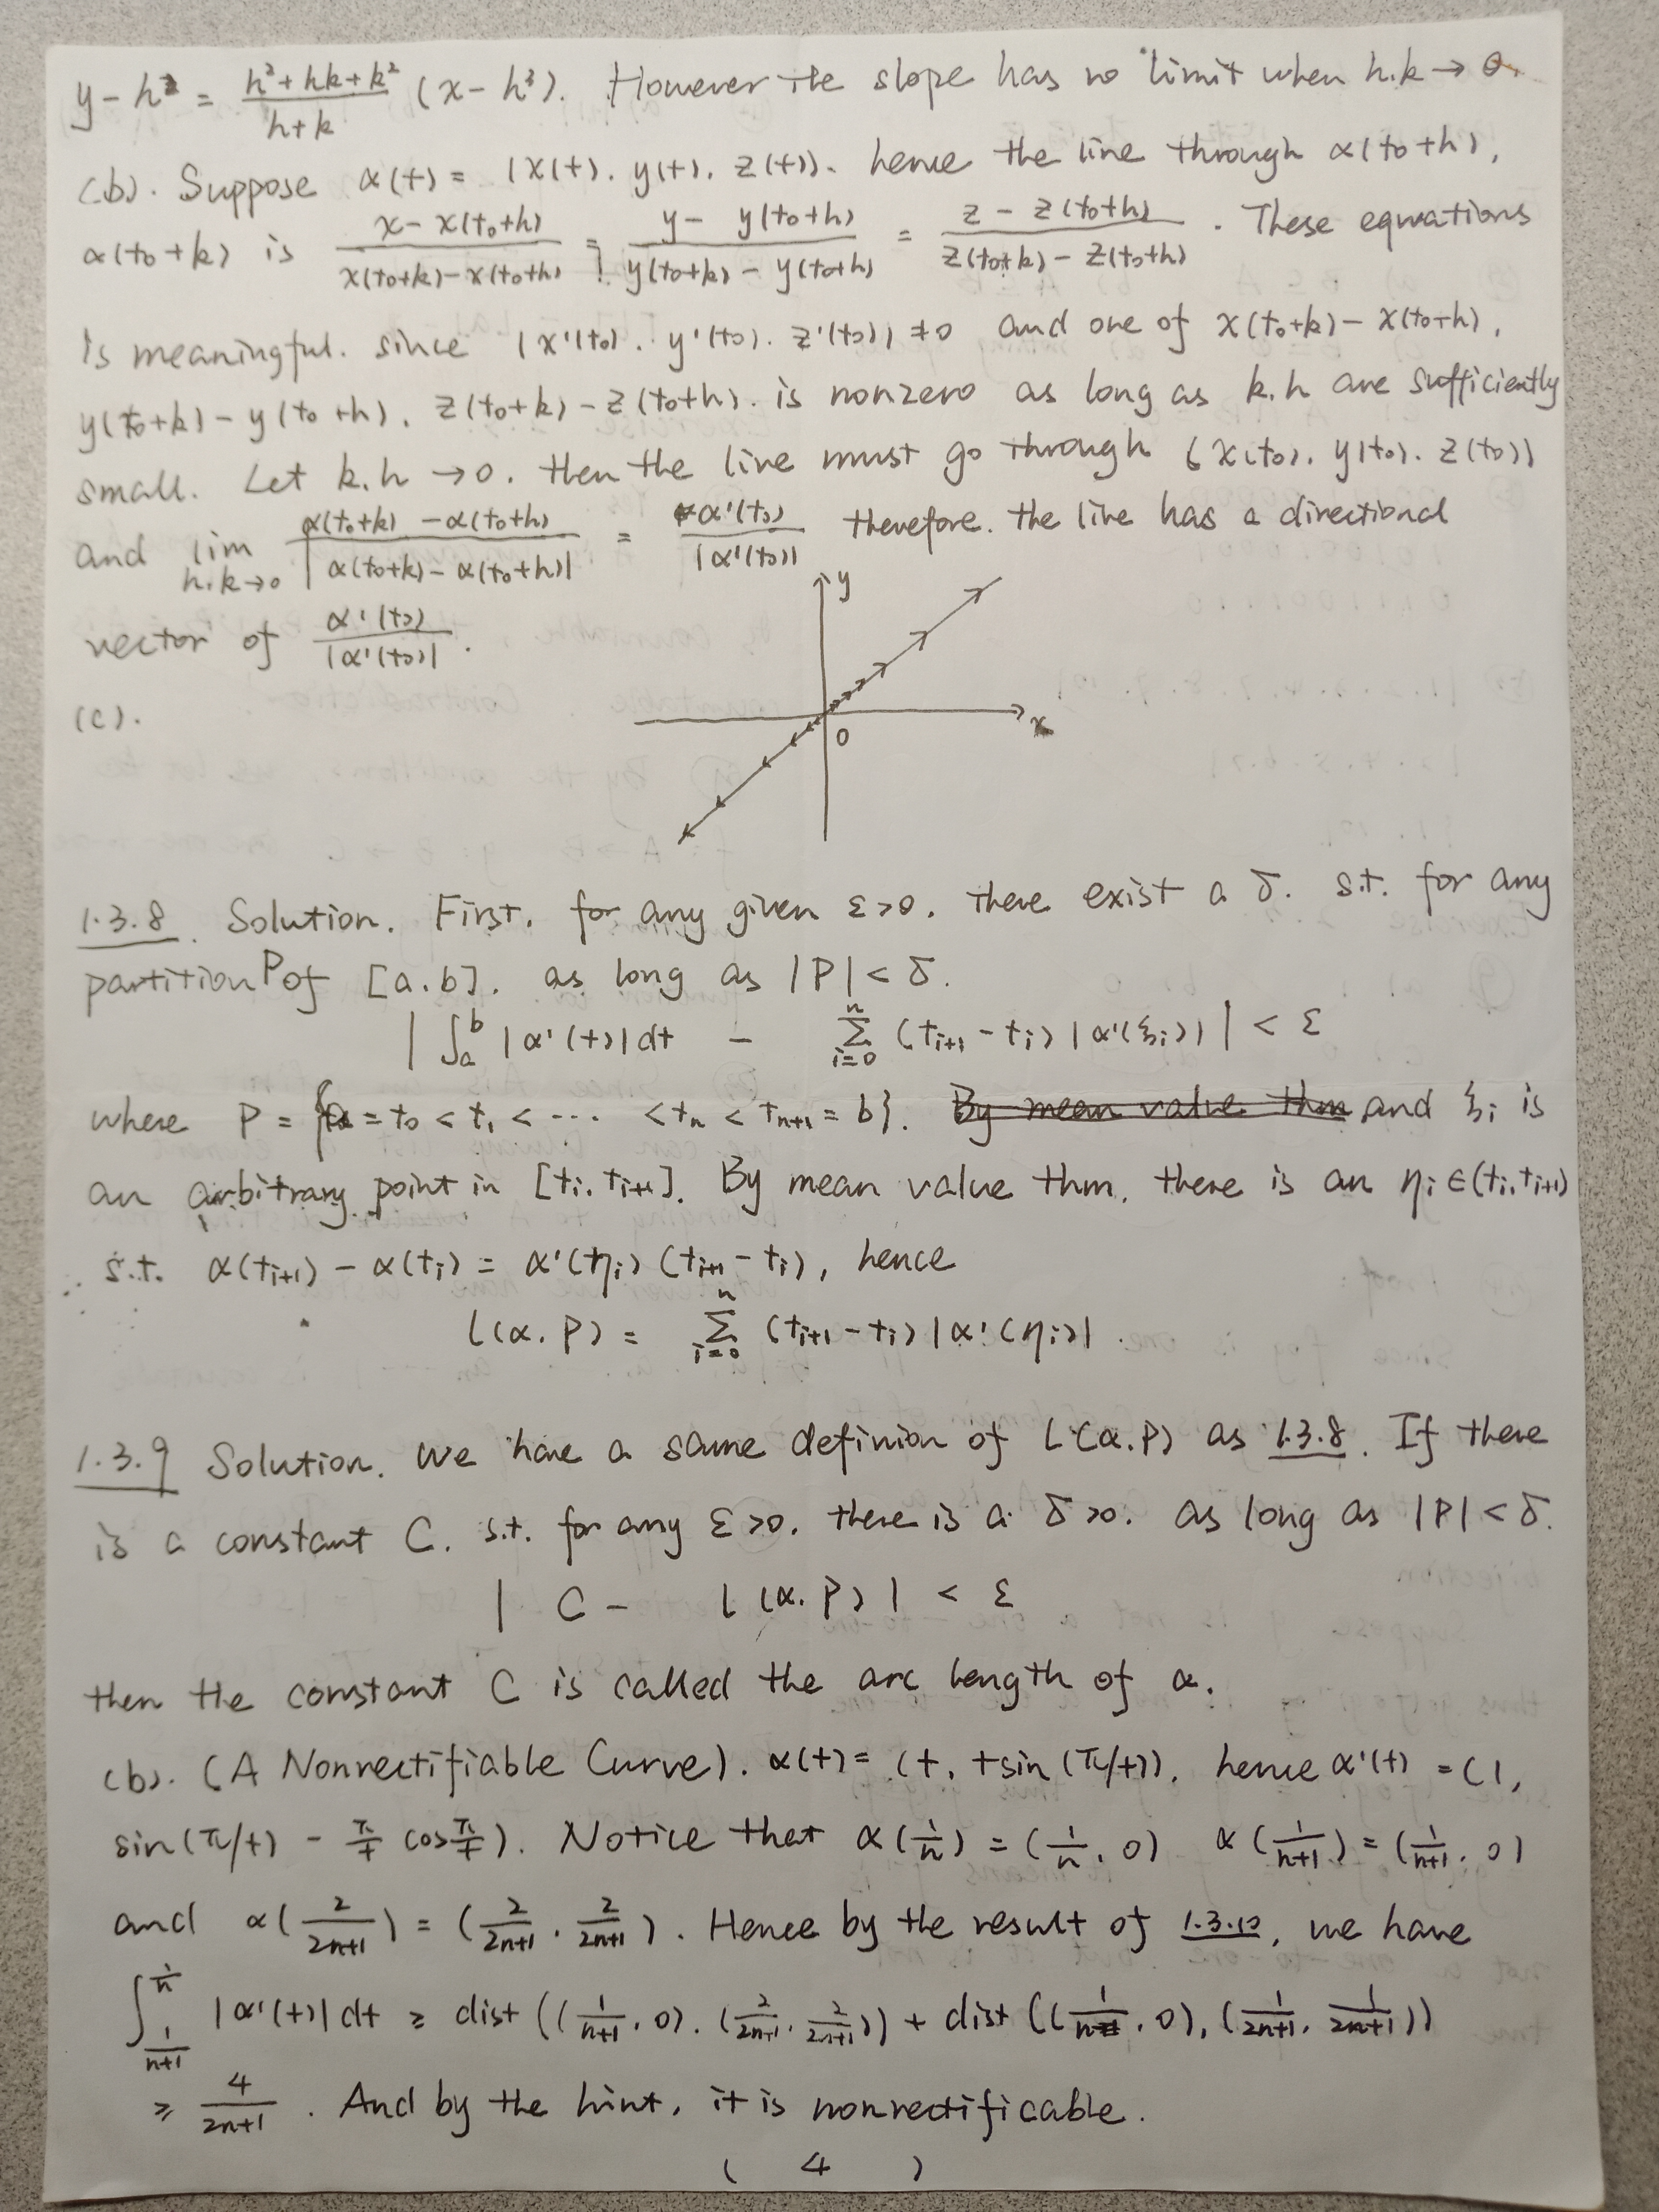 y - h² = (h²+hk+k²)/(h+k) (x - h³). However the slope has no limit when h.k → 0.
(b). Suppose α(t) = (x(t). y(t). z(t)). hence the line through α(t₀+h),
α(t₀+k) is (x - x(t₀+h))/(x(t₀+k)-x(t₀+h)) = (y - y(t₀+h))/(y(t₀+k) - y(t₀+h)) = (z - z(t₀+h))/(z(t₀+k) - z(t₀+h)). These equations
is meaningful. since (x'(t₀). y'(t₀). z'(t₀)) ≠ 0 and one of x(t₀+k) - x(t₀+h),
y(t₀+k) - y(t₀+h). z(t₀+k) - z(t₀+h). is nonzero as long as k.h are sufficiently
small. Let k.h → 0. then the line must go through (x(t₀). y(t₀). z(t₀))
and lim h.k→0 (α(t₀+k) - α(t₀+h))/|α(t₀+k) - α(t₀+h)| = α'(t₀)/|α'(t₀)| therefore. the line has a directional
vector of α'(t₀)/|α'(t₀)|.
(c).
y
x
0
1.3.8. Solution. First. for any given ε>0. there exist a δ. s.t. for any
partition P of [a.b]. as long as |P| < δ.
| ∫ₐᵇ |α'(t)| dt - Σᵢ₌₀ⁿ (tᵢ₊₁ - tᵢ) |α'(ξᵢ)| | < ε
where P = {a = t₀ < t₁ < ... < tₙ < tₙ₊₁ = b}. By mean value thm and ξᵢ is
an arbitrary point in [tᵢ. tᵢ₊₁]. By mean value thm. there is an ηᵢ ∈ (tᵢ.tᵢ₊₁)
s.t. α(tᵢ₊₁) - α(tᵢ) = α'(ηᵢ) (tᵢ₊₁ - tᵢ), hence
L(α.P) = Σᵢ₌₀ⁿ (tᵢ₊₁ - tᵢ) |α'(ηᵢ)|.
1.3.9 Solution. We have a same definion of L(α.P) as 1.3.8. If there
is a constant C. s.t. for any ε>0. there is a δ>0. as long as |P| < δ.
| C - L(α.P) | < ε
then the constant C is called the arc length of α.
(b). (A Nonrectifiable Curve). α(t) = (t, t sin(π/t)). hence α'(t) = (1,
sin(π/t) - π/t cos π/t). Notice that α(1/n) = (1/n, 0) α(1/(n+1)) = (1/(n+1). 0)
and α(2/(2n+1)) = (2/(2n+1), 2/(2n+1)). Hence by the result of 1.3.10, we have
∫_{1/(n+1)}^{1/n} |α'(t)| dt ≥ dist((1/(n+1), 0). (2/(2n+1), 2/(2n+1))) + dist((1/n, 0), (1/(2n+1), 1/(2n+1)))
≥ 4/(2n+1). And by the hint, it is nonrectificable.
( 4 )